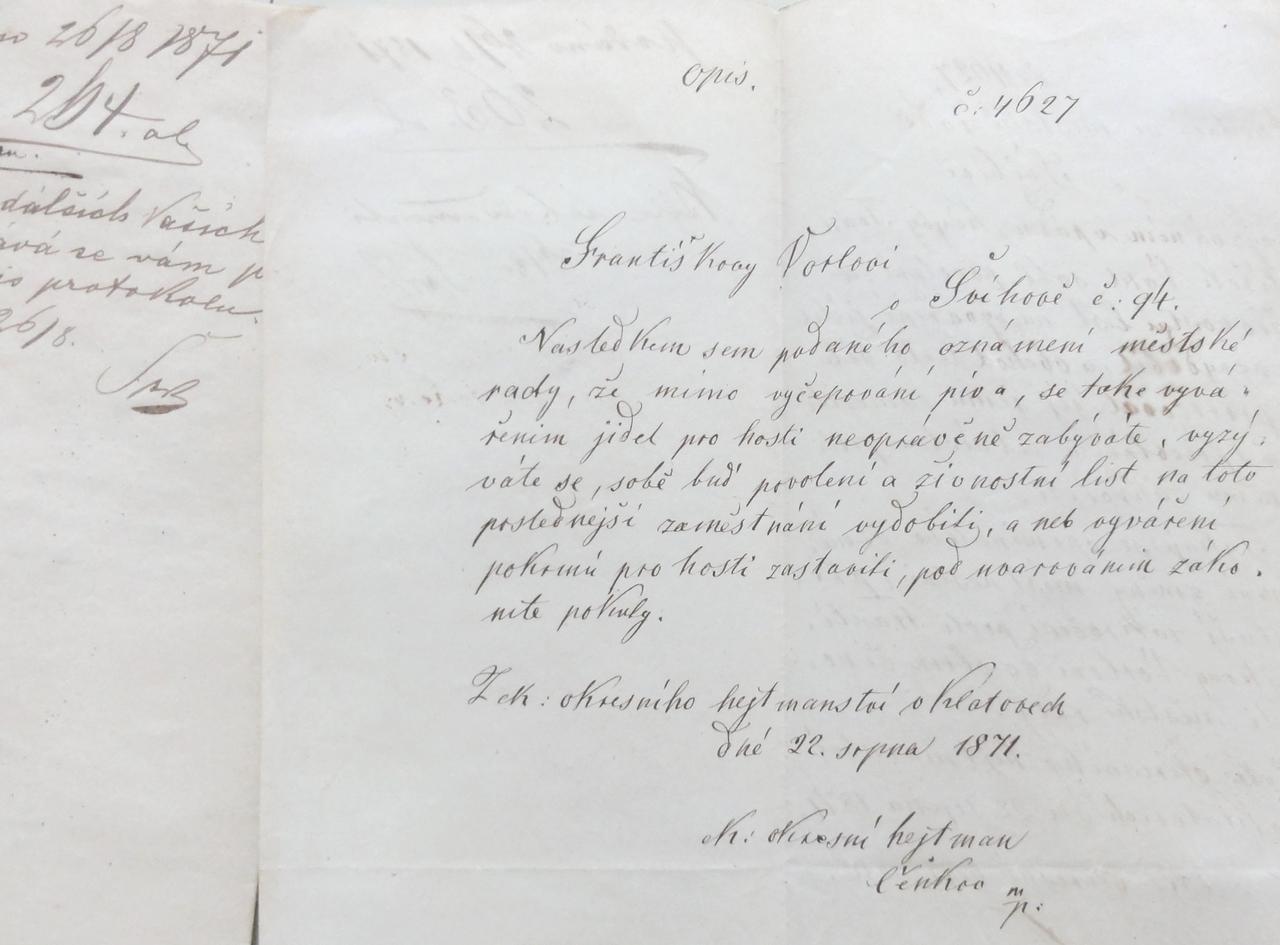 26/8 1871
264. ab
dálších Vašich
ává se vám p
protokolu.
26/8.
Opis.
č: 4627
Františkovy Vorlovi
v Švihově č: 94.
Nasledkem sem podaného oznámení městské
rady, že mimo vyčepování piva, se take vyvá-
řenim jidel pro hosti neoprávěně zabýváte, vyzý-
váte se, sobě buď povolení a živnostní list na toto
poslednejší zaměstnání vydobiti, a neb vyváření
pokrmů pro hosti zastaviti, pod uvarováním záko-
nite pokuty.
Z ck: okresního hejtmanství v Klatovech
dné 22. srpna 1871.
ck: okresní hejtman
Čenkov mp: